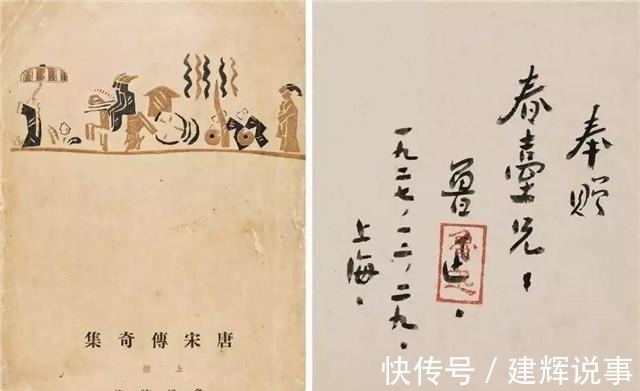 唐宋傳奇集
上冊
奉贈
春臺兄：
魯迅。
一九二七，一二，二九。
上海。
快传号 / 建辉说事